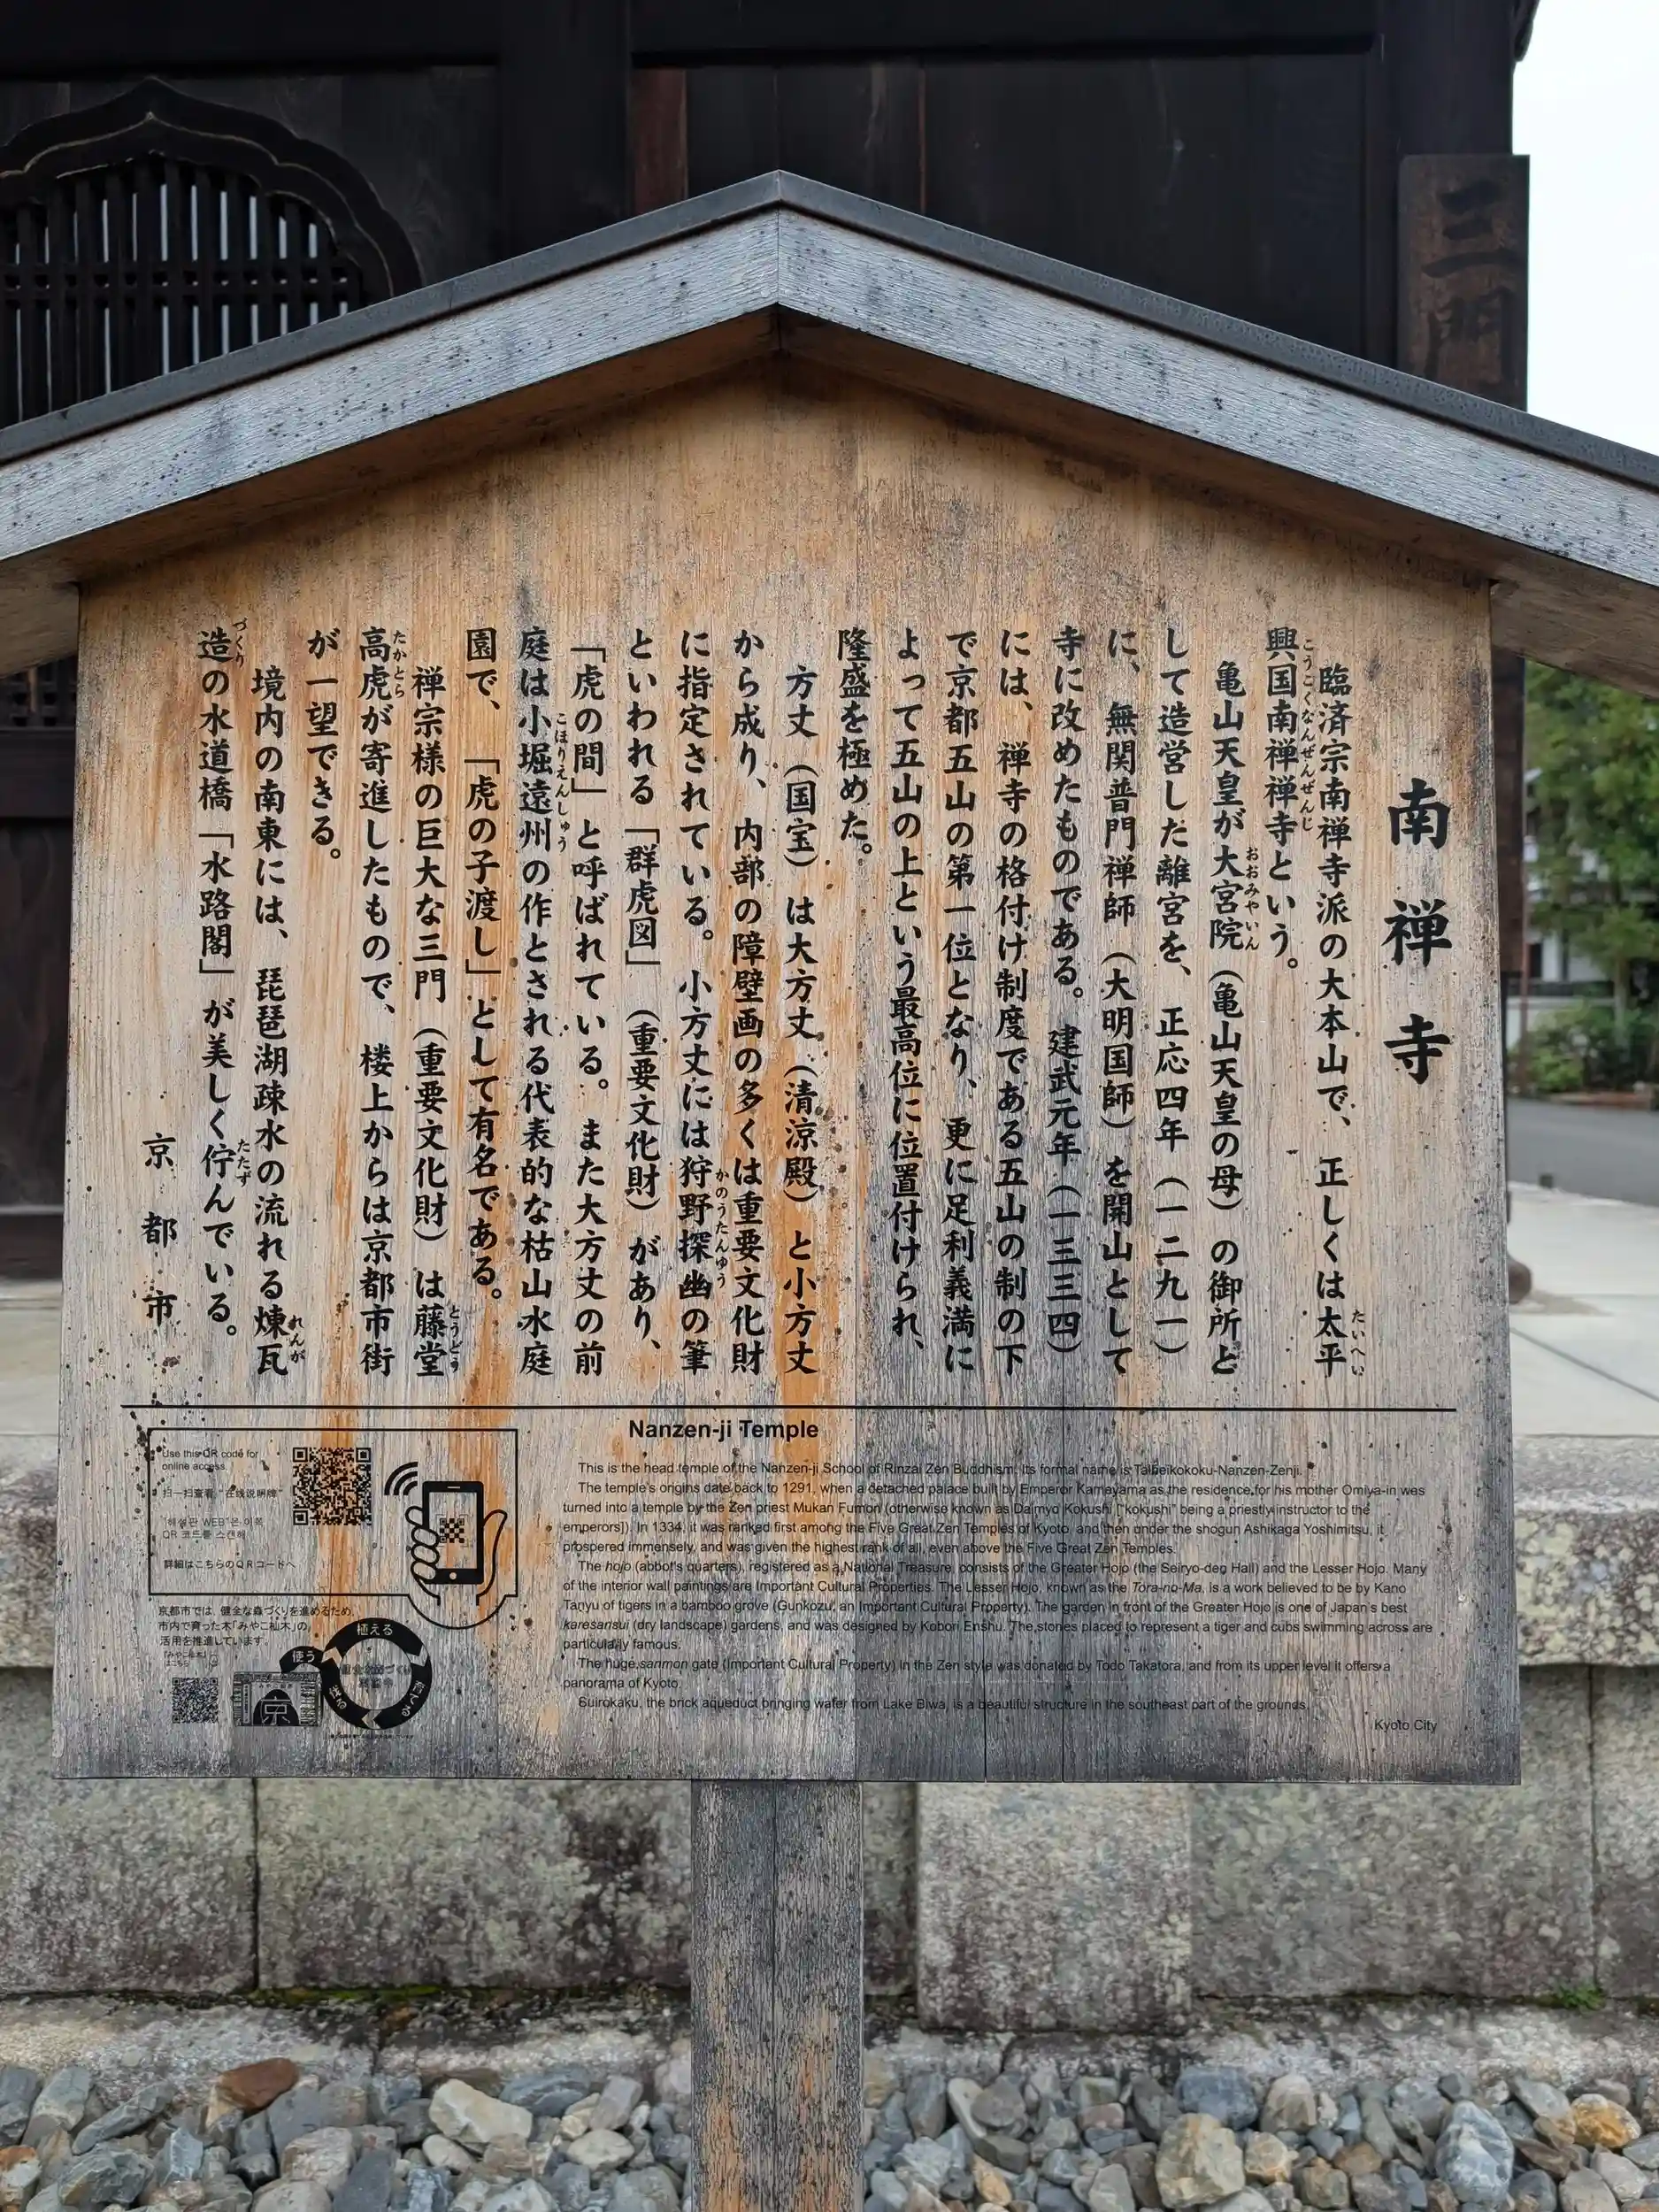 三門
南禅寺
臨済宗南禅寺派の大本山で、正しくは太平
たいへい
興国南禅禅寺という。
こうこくなんぜんぜんじ
亀山天皇が大宮院(亀山天皇の母)の御所と
おおみやいん
して造営した離宮を、正応四年(一二九一)
に、無関普門禅師(大明国師)を開山として
寺に改めたものである。建武元年(一三三四)
には、禅寺の格付け制度である五山の制の下
で京都五山の第一位となり、更に足利義満に
よって五山の上という最高位に位置付けられ、
隆盛を極めた。
方丈(国宝)は大方丈(清涼殿)と小方丈
から成り、内部の障壁画の多くは重要文化財
に指定されている。小方丈には狩野探幽の筆
かのうたんゆう
といわれる「群虎図」(重要文化財)があり、
「虎の間」と呼ばれている。また大方丈の前
庭は小堀遠州の作とされる代表的な枯山水庭
こほりえんしゅう
園で、「虎の子渡し」として有名である。
禅宗様の巨大な三門(重要文化財)は藤堂
とうどう
高虎が寄進したもので、楼上からは京都市街
たかとら
が一望できる。
境内の南東には、琵琶湖疎水の流れる煉瓦
れんが
造の水道橋「水路閣」が美しく佇んでいる。
づくり
たたず
京都市
Nanzen-ji Temple
This is the head temple of the Nanzen-ji School of Rinzai Zen Buddhism. Its formal name is Taiheikokoku-Nanzen-Zenji.
The temple's origins date back to 1291, when a detached palace built by Emperor Kameyama as the residence for his mother Omiya-in was
turned into a temple by the Zen priest Mukan Fumon (otherwise known as Daimyo Kokushi ["kokushi" being a priestly instructor to the
emperors]). In 1334, it was ranked first among the Five Great Zen Temples of Kyoto, and then under the shogun Ashikaga Yoshimitsu, it
prospered immensely, and was given the highest rank of all, even above the Five Great Zen Temples.
The hojo (abbot's quarters), registered as a National Treasure, consists of the Greater Hojo (the Seiryo-den Hall) and the Lesser Hojo. Many
of the interior wall paintings are Important Cultural Properties. The Lesser Hojo, known as the Tora-no-Ma, is a work believed to be by Kano
Tanyu of tigers in a bamboo grove (Gunkozu, an Important Cultural Property). The garden in front of the Greater Hojo is one of Japan's best
karesansui (dry landscape) gardens, and was designed by Kobori Enshu. The stones placed to represent a tiger and cubs swimming across are
particularly famous.
The huge sanmon gate (Important Cultural Property) in the Zen style was donated by Todo Takatora, and from its upper level it offers a
panorama of Kyoto.
Suirokaku, the brick aqueduct bringing water from Lake Biwa, is a beautiful structure in the southeast part of the grounds.
Kyoto City
Use this QR code for
online access
扫一扫查看"在线说明牌"
"해설판 WEB"은 이쪽
QR 코드를 스캔해
詳細はこちらのQRコードへ
京都市では、健全な森づくりを進めるため、
市内で育った木「みやこ杣木」の
活用を推進しています。
植える
使う
育てる
京